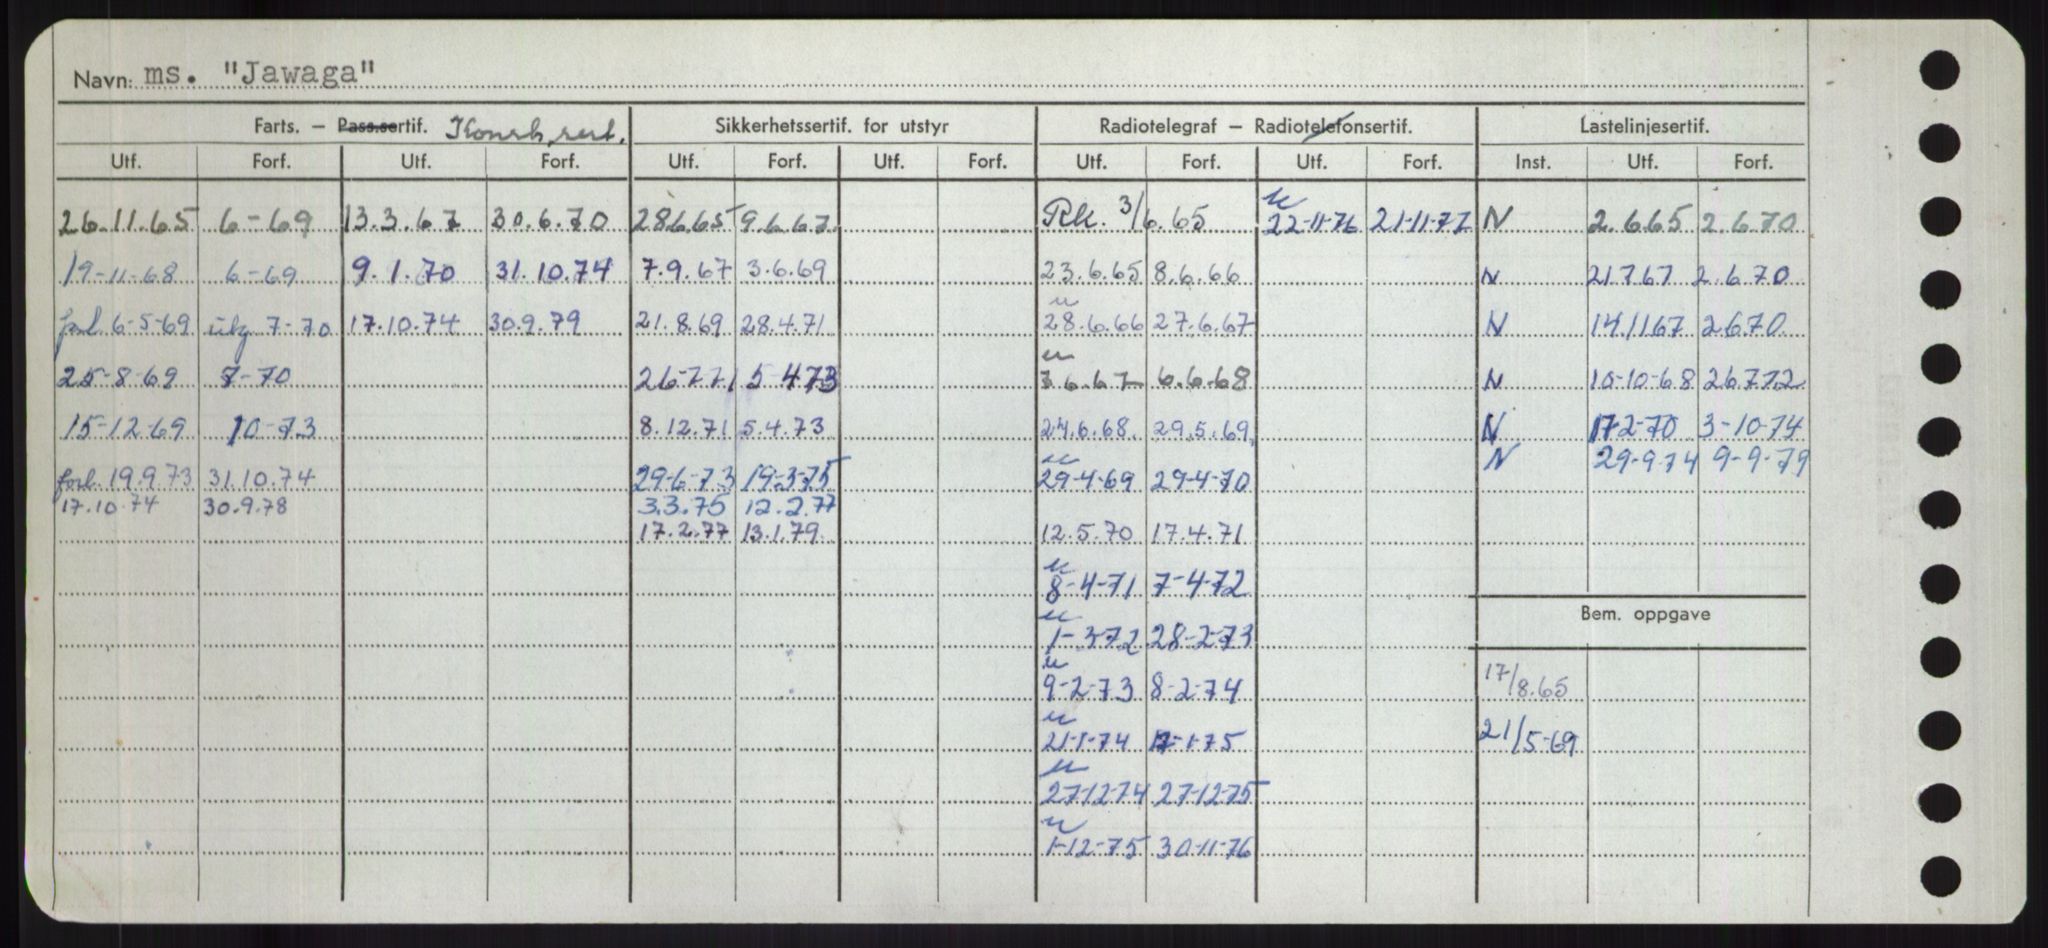 Navn: ms. "Jawaga"
Farts. — Pass.sertif. Konstr. sert. Sikkerhetssertif. for utstyr Radiotelegraf — Radiotelefonsertif. Lastelinjesertif.
Utf. Forf. Utf. Forf. Utf. Forf. Utf. Forf. Utf. Forf. Utf. Forf. Inst. Utf. Forf.
26.11.65 6-69 13.3.67 30.6.70 28.6.65 9.6.67 Rk. 3/6.65 u 22-11-76 21-11-77 N 2.6.65 2.6.70
19-11-68 6-69 9.1.70 31.10.74 7.9.67 3.6.69 23.6.65 8.6.66 N 21.7.67 2.6.70
forl. 6-5-69 utg. 7-70 17.10.74 30.9.79 21.8.69 28.4.71 u 28.6.66 27.6.67 N 14.11.67 2.6.70
25-8-69 7-70 26-7-71 5-4-73 u 7.6.67 6.6.68 N 10-10-68 26.7.72
15-12-69 10-73 8.12.71 5.4.73 24.6.68 29.5.69 N 17-2-70 3-10-74
N 29-9-74 9-9-79
forl. 19.9.73 31.10.74 29-6-73 19-3-75 u 29-4-69 29-4-70
17.10.74 30.9.78 3.3.75 12.2.77
17.2.77 13.1.79 12.5.70 17.4.71
u 8-4-71 7-4-72
Bem. oppgave
u 1-3-72 28-2-73
u 9-2-73 8-2-74 17/8.65
u 21-1-74 17-1-75 21/5-69
u 27-12-74 27-12-75
u 1-12-75 30-11-76